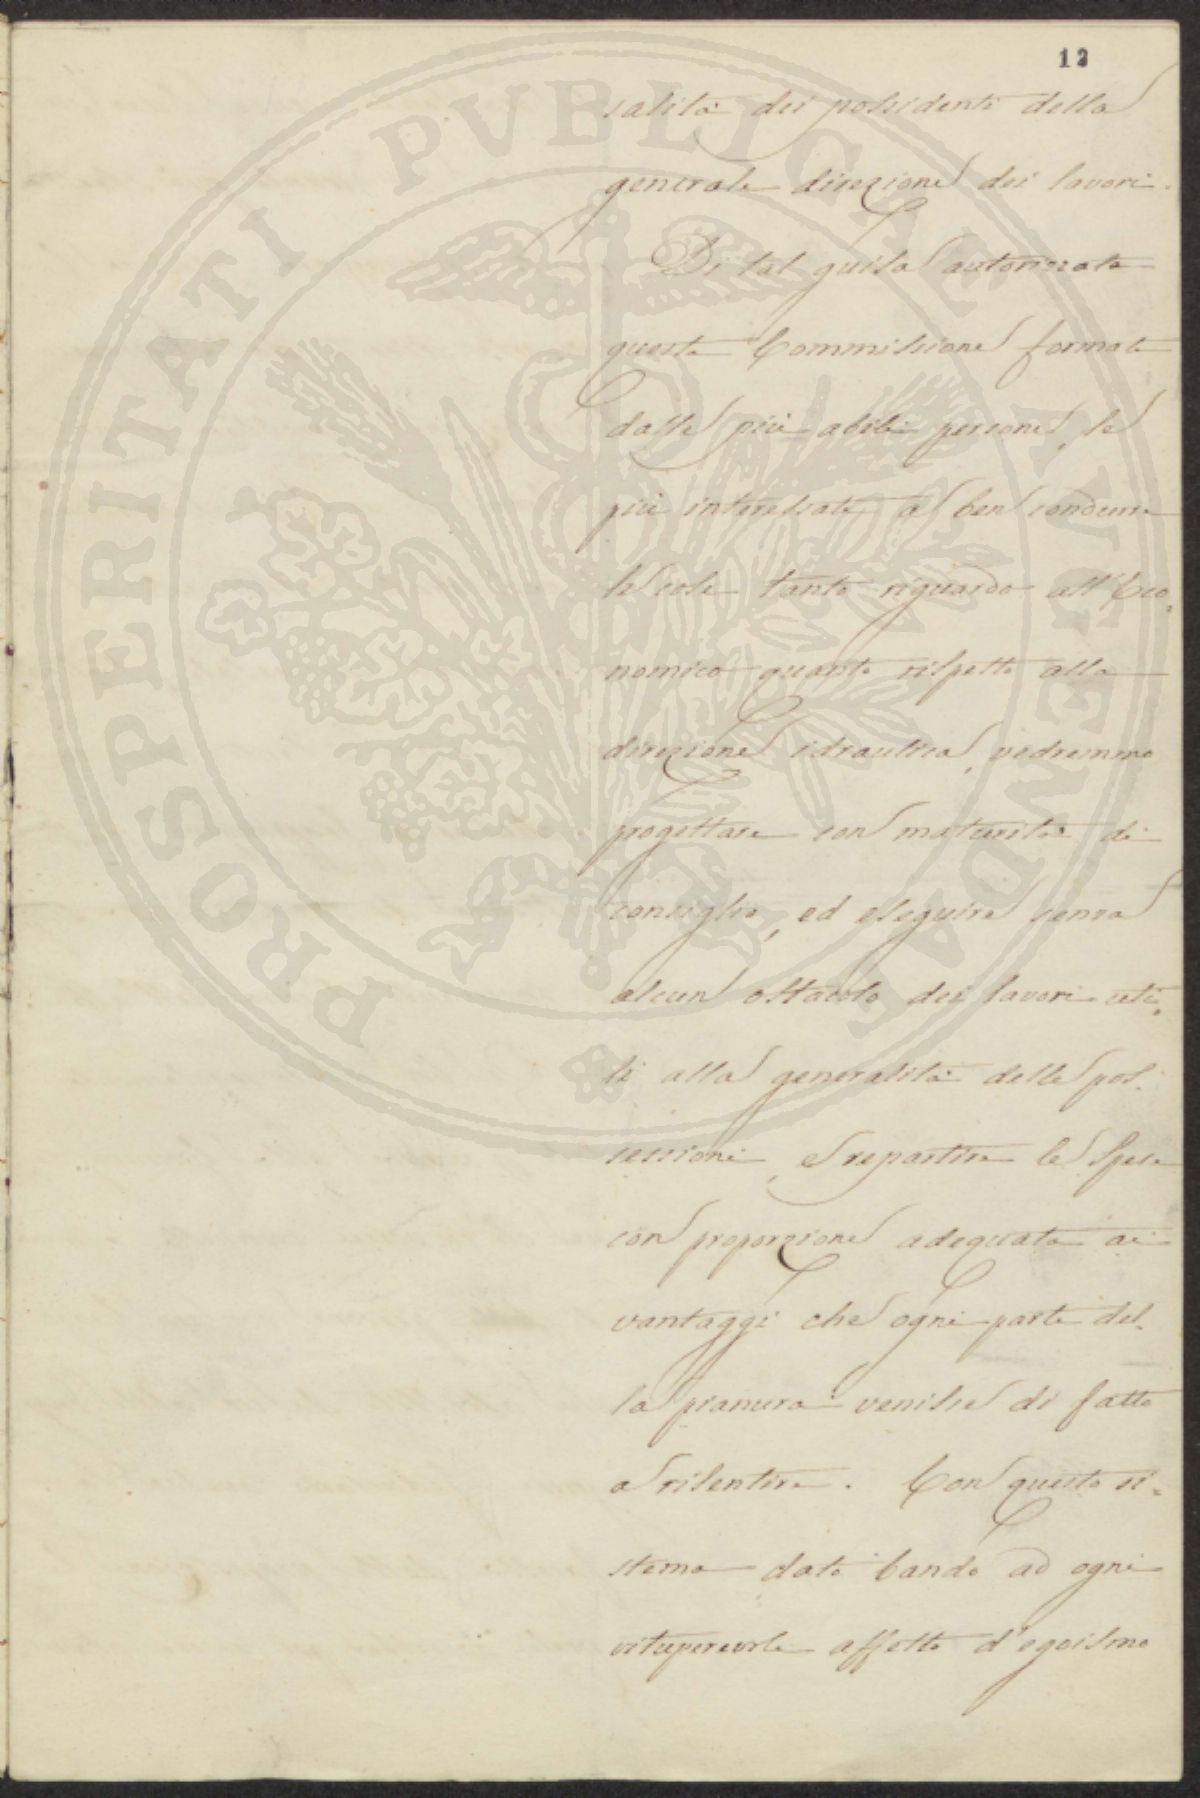 12
salità dei possidenti della
generale direzione dei lavori.
Di tal guisa autorizzata
questa Commissione formata
dalle più abili persone, le
più interessate a ben condurre
le cose tanto riguardo all'Eco-
nomico quanto rispetto alla
direzione idraulica, vedremmo
progettare con maturità di
consiglio, ed eseguire senza
alcun ostacolo dei lavori uti-
li alla generalità delle pos-
sessioni, e repartire le spese
con proporzione adeguata ai
vantaggi che ogni parte del-
la pianura venisse di fatto
a risentire. Con questo si-
stema dato bando ad ogni
vituperevole affetto d'egoismo
PROSPERITATI PVBLICAE AVGENDAE